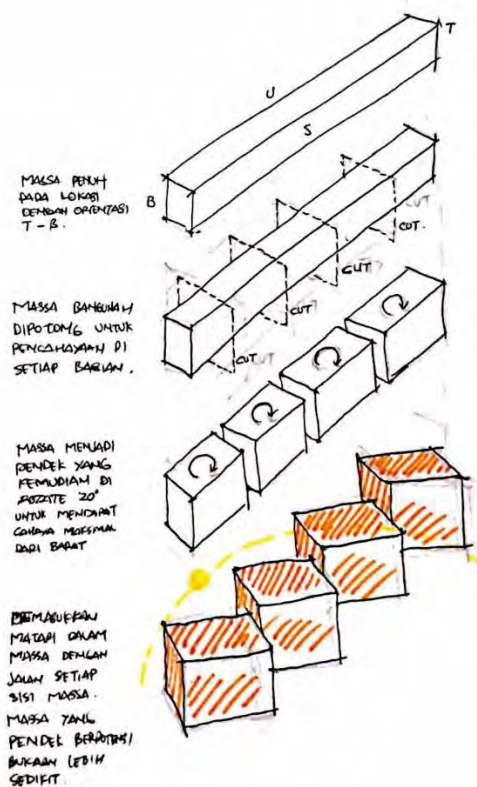 T
U
S
B
MASSA PENUH
PADA LOKASI
DENGAN ORIENTASI
T - B.
CUT.
CUT
CUT
CUT
MASSA BANGUNAN
DIPOTONG UNTUK
PENCAHAYAAN DI
SETIAP BAGIAN.
MASSA MENJADI
PENDEK YANG
KEMUDIAN DI
ROTATE 20°
UNTUK MENDAPAT
CAHAYA MAKSIMAL
DARI BARAT
MATARI DALAM
MASSA DENGAN
JALAN SETIAP
SISI MASSA.
MASSA YANG
PENDEK BERPOTENSI
BUKAAN LEBIH
SEDIKIT.